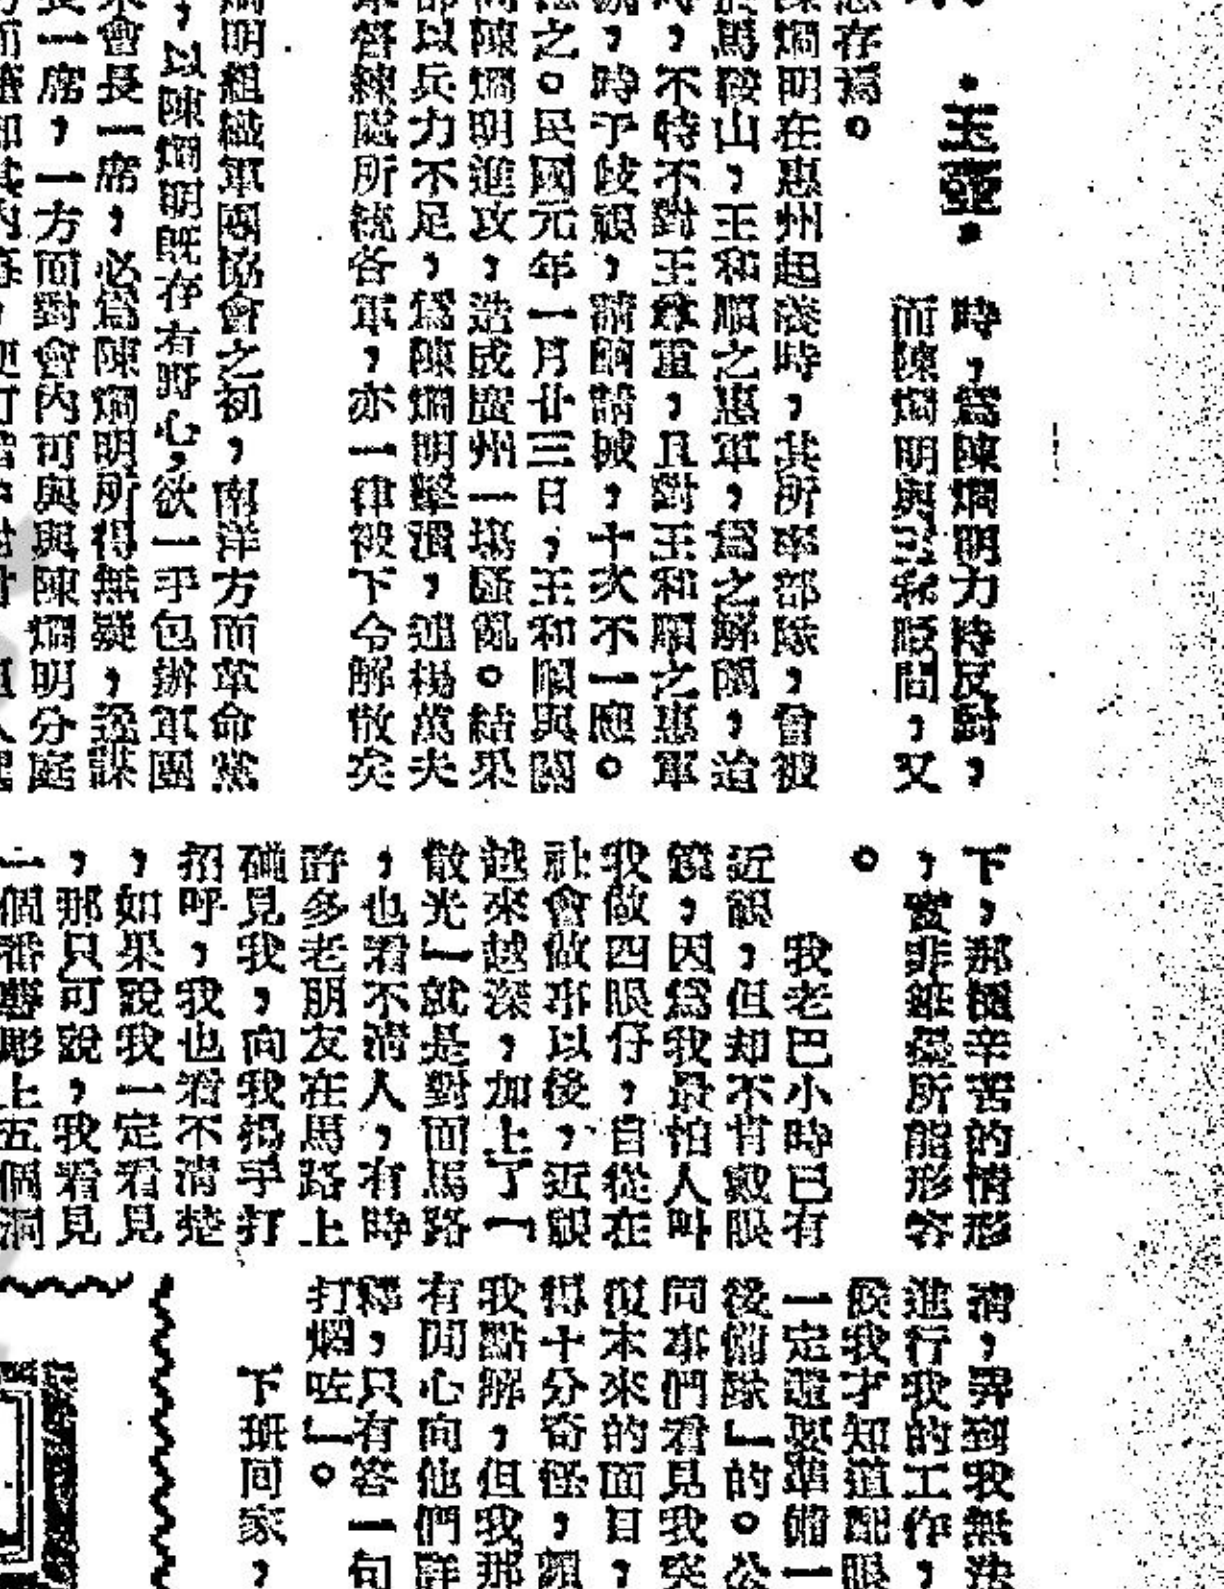 ·玉壺·
時，爲陳烱明力持反對，
而陳烱明與王和順間，又
存焉。
陳烱明在惠州起義時，其所率部隊，曾被
於馬鞍山，王和順之惠軍，爲之解圍，迨
時，不特不對王尊重，且對王和順之惠軍
，時予歧視，請餉請械，十次不一應。
之。民國元年一月廿三日，王和順與關
向陳烱明進攻，造成廣州一場騷亂。結果
部以兵力不足，爲陳烱明擊潰，連楊萬夫
軍督練處所統各軍，亦一律被下令解散矣
烱明組織軍團協會之初，南洋方面革命黨
，以陳烱明既存有野心，欲一手包辦軍團
會長一席，必爲陳烱明所得無疑，遂謀
長一席，一方面對會內可與與陳烱明分庭
下，那種辛苦的情形
，實非錐墨所能形容
。
我老巴小時已有
近視，但却不肯戴眼
鏡，因爲我最怕人叫
我做四眼仔，自從在
社會做事以後，近視
越來越深，加上了「
散光」就是對面馬路
，也看不清人，有時
許多老朋友在馬路上
碰見我，向我揚手打
招呼，我也看不清楚
，如果說我一定看見
，那只可說，我看見
一個番攤彫上五個洞
清，弄到我無法
進行我的工作，
候我才知道配眼
一定還要準備一
後備隊」的。公
同事們看見我突
復本來的面目，
得十分奇怪，
我點解，但我那
有閒心向他們詳
釋，只有答一句
打烟咗」。
下班回家，